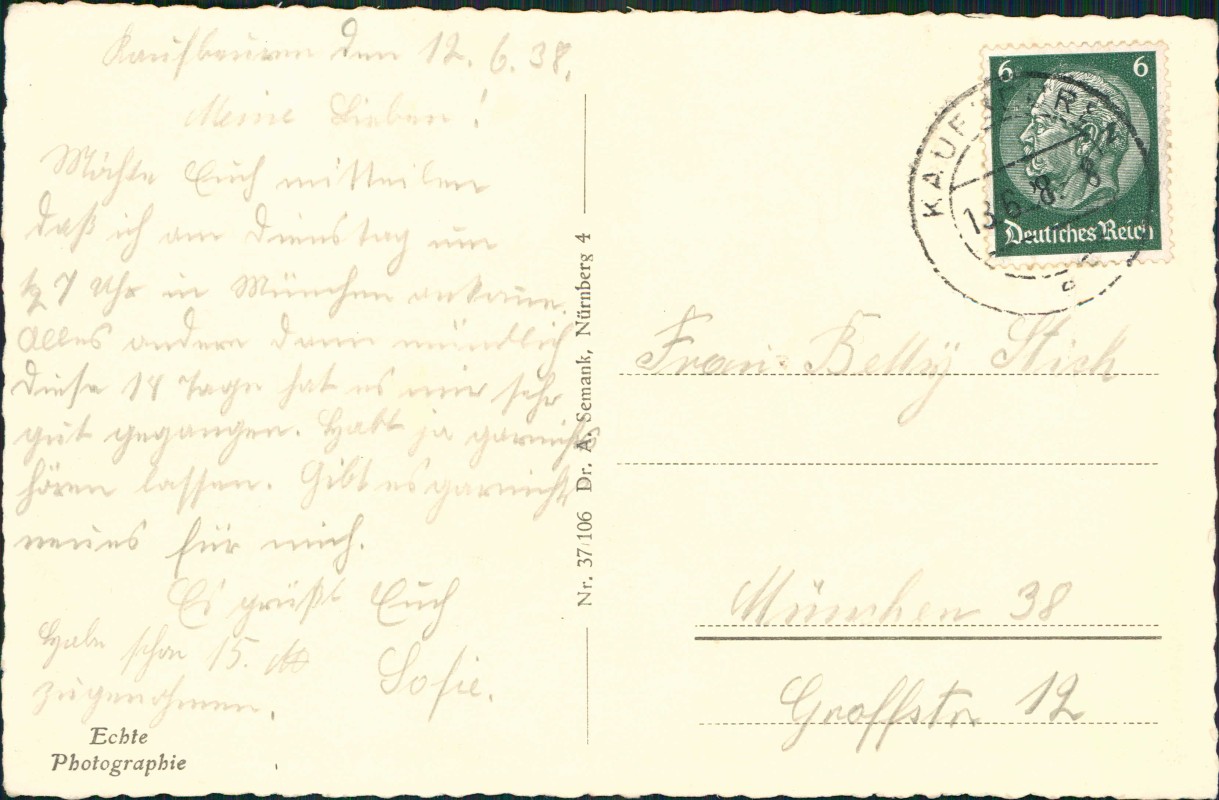 Kaufbeuren den 12. 6. 38.
Meine Lieben!
Möchte Euch mitteilen
daß ich am Dienstag um
½ 7 Uhr in München ankomme.
Alles andere dann mündlich
diese 14 Tage hat es mir sehr
gut gegangen. Habt ja garnichts
hören lassen. Gibt es garnicht
neues für mich.
Es grüßt Euch
Sofie.
Habe schon 15. ℔
zugenommen.
Echte
Photographie
Nr. 37/106 Dr. A. Semank, Nürnberg 4
6 6
Deutsches Reich
KAUFBEUREN
13.6.38.-8
d
Betty
München 38
12